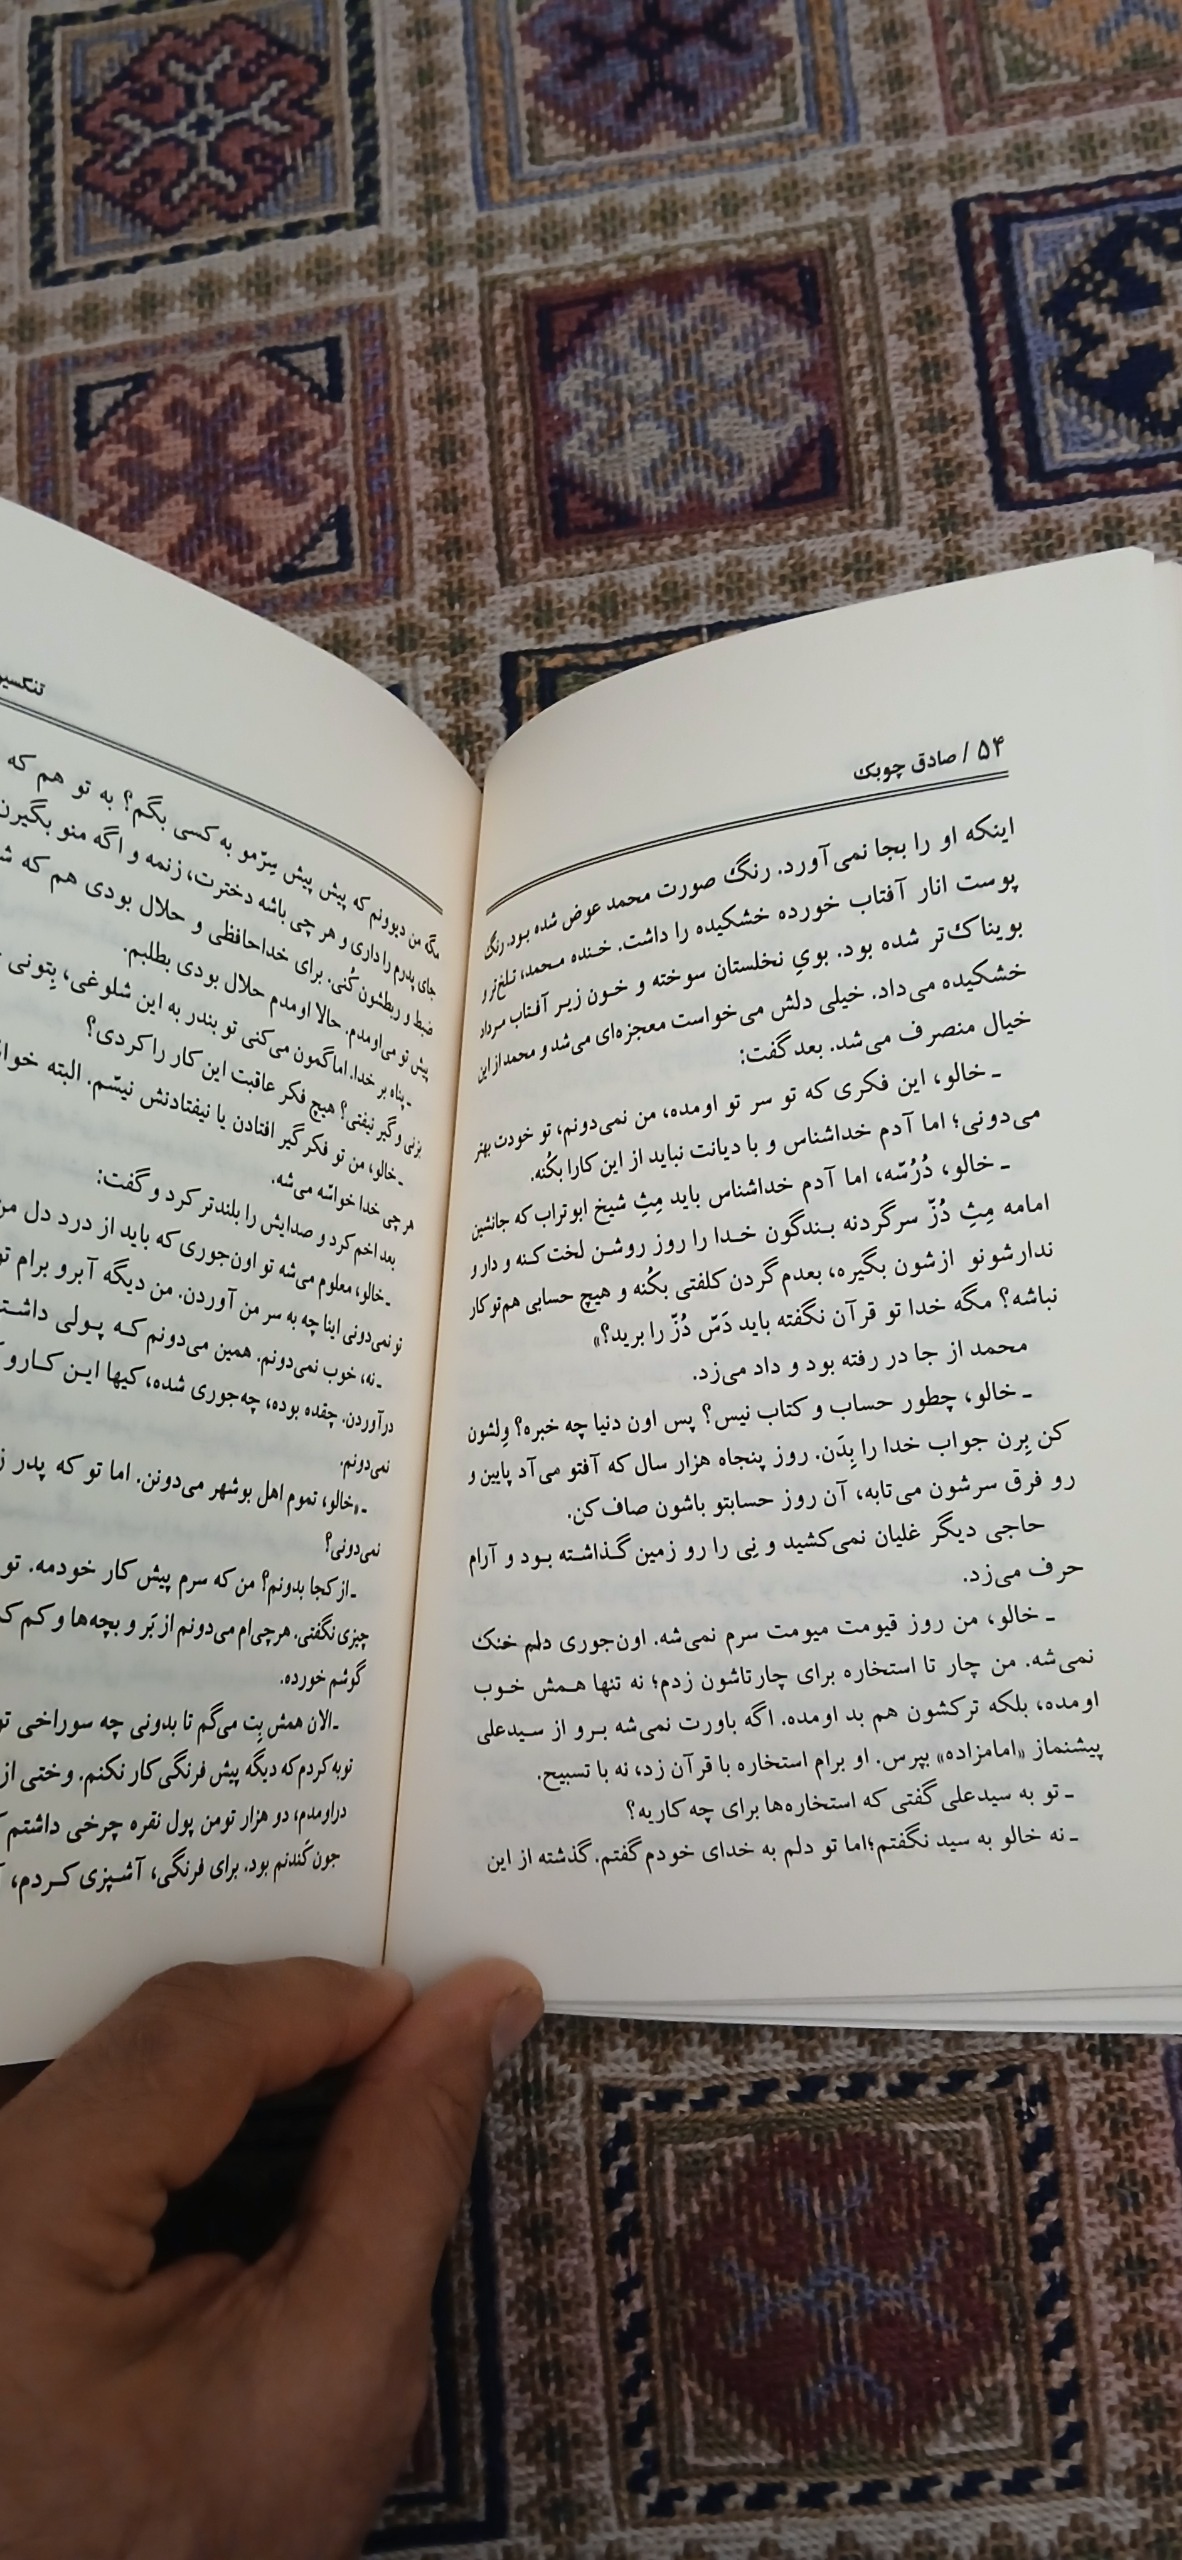 ۵۴ / صادق چوبک
اینکه او را بجا نمی‌آورد. رنگ صورت محمد عوض شده بود. رنگ
پوست انار آفتاب خورده خشکیده را داشت. خنده محمد، تلخ‌تر و
بویناک‌تر شده بود. بویِ نخلستان سوخته و خون زیر آفتاب مرداد
خشکیده می‌داد. خیلی دلش می‌خواست معجزه‌ای می‌شد و محمد از این
خیال منصرف می‌شد. بعد گفت:
ـ خالو، این فکری که تو سر تو اومده، من نمی‌دونم، تو خودت بهتر
می‌دونی؛ اما آدم خداشناس و با دیانت نباید از این کارا بکُنه.
ـ خالو، دُرُسّه، اما آدم خداشناس باید مِثِ شیخ ابوتراب که جانشین
امامه مِثِ دُزّ سرگردنه بندگون خدا را روز روشن لخت کنه و دار و
ندارشونو ازشون بگیره، بعدم گردن کلفتی بکُنه و هیچ حسابی هم تو کار
نباشه؟ مگه خدا تو قرآن نگفته باید دَسّ دُزّ را برید؟»
محمد از جا در رفته بود و داد می‌زد.
ـ خالو، چطور حساب و کتاب نیس؟ پس اون دنیا چه خبره؟ وِلشون
کن یِرن جواب خدا را بِدَن. روز پنجاه هزار سال که آفتو می‌آد پایین و
رو فرق سرشون می‌تابه، آن روز حسابتو باشون صاف کن.
حاجی دیگر غلیان نمی‌کشید و نِی را رو زمین گذاشته بود و آرام
حرف می‌زد.
ـ خالو، من روز قیومت میومت سرم نمی‌شه. اون‌جوری دلم خنک
نمی‌شه. من چار تا استخاره برای چارتاشون زدم؛ نه تنها همش خوب
اومده، بلکه ترکشون هم بد اومده. اگه باورت نمی‌شه برو از سیدعلی
پیشنماز «امامزاده» بپرس. او برام استخاره با قرآن زد، نه با تسبیح.
ـ تو به سیدعلی گفتی که استخاره‌ها برای چه کاریه؟
ـ نه خالو به سید نگفتم؛ اما تو دلم به خدای خودم گفتم. گذشته از این
تنگسیر
مگه من دیوونم که پیش پیش سِرّمو به کسی بگم؟ به تو هم که
جای پدرم را داری و هر چی باشه دخترت، زنمه و اگه منو بگیرن
ضبط و ربطشون کُنی. برای خداحافظی و حلال بودی هم که
پیش تو می‌اومدم. حالا اومدم حلال بودی بطلبم.
ـ پناه بر خدا. اما گمون می‌کنی تو بندر به این شلوغی، بِتونی
بزنی و گیر نیفتی؟ هیچ فکر عاقبت این کار را کردی؟
ـ خالو، من تو فکر گیر افتادن یا نیفتادنش نیسّم. البته
هر چی خدا خواسّه می‌شه.
بعد اخم کرد و صدایش را بلندتر کرد و گفت:
ـ خالو، معلوم می‌شه تو اون‌جوری که باید از درد دل من
تو نمی‌دونی اینا چه به سر من آوردن. من دیگه آبرو برام
ـ نه، خوب نمی‌دونم. همین می‌دونم که پولی
درآوردن. چقده بوده، چه‌جوری شده، کیها این کارو
نمی‌دونم.
ـ «خالو، تموم اهل بوشهر می‌دونن. اما تو که پدر
نمی‌دونی؟
ـ از کجا بدونم؟ من که سرم پیش کار خودمه. تو
چیزی نگفتی. هرچی‌ام می‌دونم از بَر و بچه‌ها و کم
گوشم خورده.
ـ الان همش بِت می‌گم تا بدونی چه سوراخی
توبه کردم که دیگه پیش فرنگی کار نکنم. وختی از
دراومدم، دو هزار تومن پول نقره چرخی داشتم
جون کَندنم بود. برای فرنگی، آشپزی کردم،